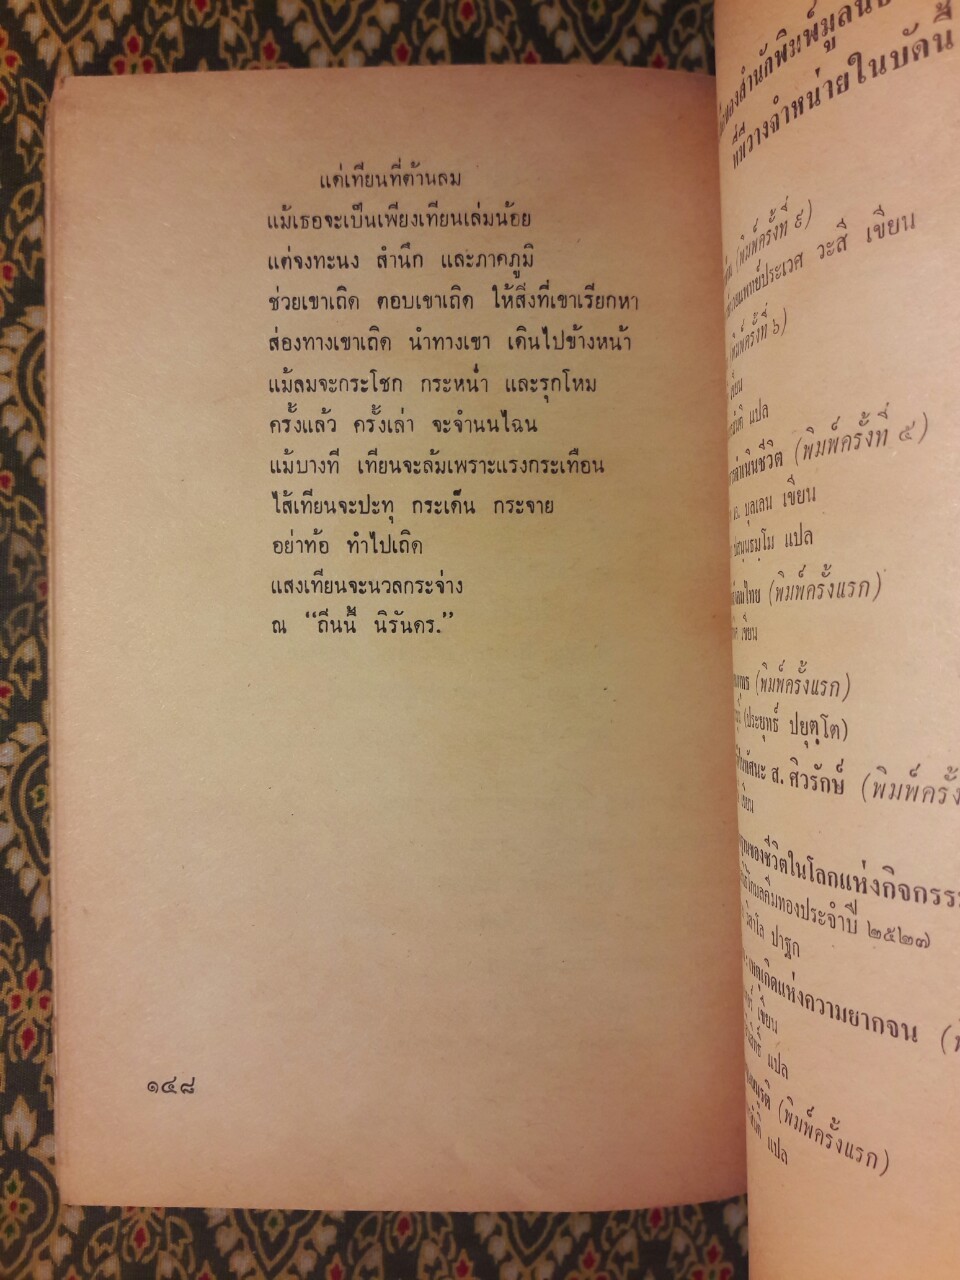 แด่เทียนที่ต้านลม
แม้เธอจะเป็นเพียงเทียนเล่มน้อย
แต่จงทะนง สำนึก และภาคภูมิ
ช่วยเขาเถิด ตอบเขาเถิด ให้สิ่งที่เขาเรียกหา
ส่องทางเขาเถิด นำทางเขา เดินไปข้างหน้า
แม้ลมจะกระโชก กระหน่ำ และรุกโหม
ครั้งแล้ว ครั้งเล่า จะจำนนไฉน
แม้บางที เทียนจะล้มเพราะแรงกระเทือน
ไส้เทียนจะปะทุ กระเด็น กระจาย
อย่าท้อ ทำไปเถิด
แสงเทียนจะนวลกระจ่าง
ณ “ถิ่นนี้ นิรันดร.”
๑๔๘
ที่วางจำหน่ายในบัดนี้
(พิมพ์ครั้งที่ ๙)
ประเวศ วะสี เขียน
(พิมพ์ครั้งที่ ๖)
เขียน
แปล
(พิมพ์ครั้งที่ ๕)
เขียน
แปล
(พิมพ์ครั้งแรก)
เขียน
(พิมพ์ครั้งแรก)
(ประยุทธ์ ปยุตฺโต)
ส. ศิวรักษ์ (พิมพ์ครั้ง
เขียน
ของชีวิตในโลกแห่งกิจกรรม
โกมลคีมทองประจำปี ๒๕๒๗
ปาฐก
เหตุเกิดแห่งความยากจน
เขียน
แปล
(พิมพ์ครั้งแรก)
แปล